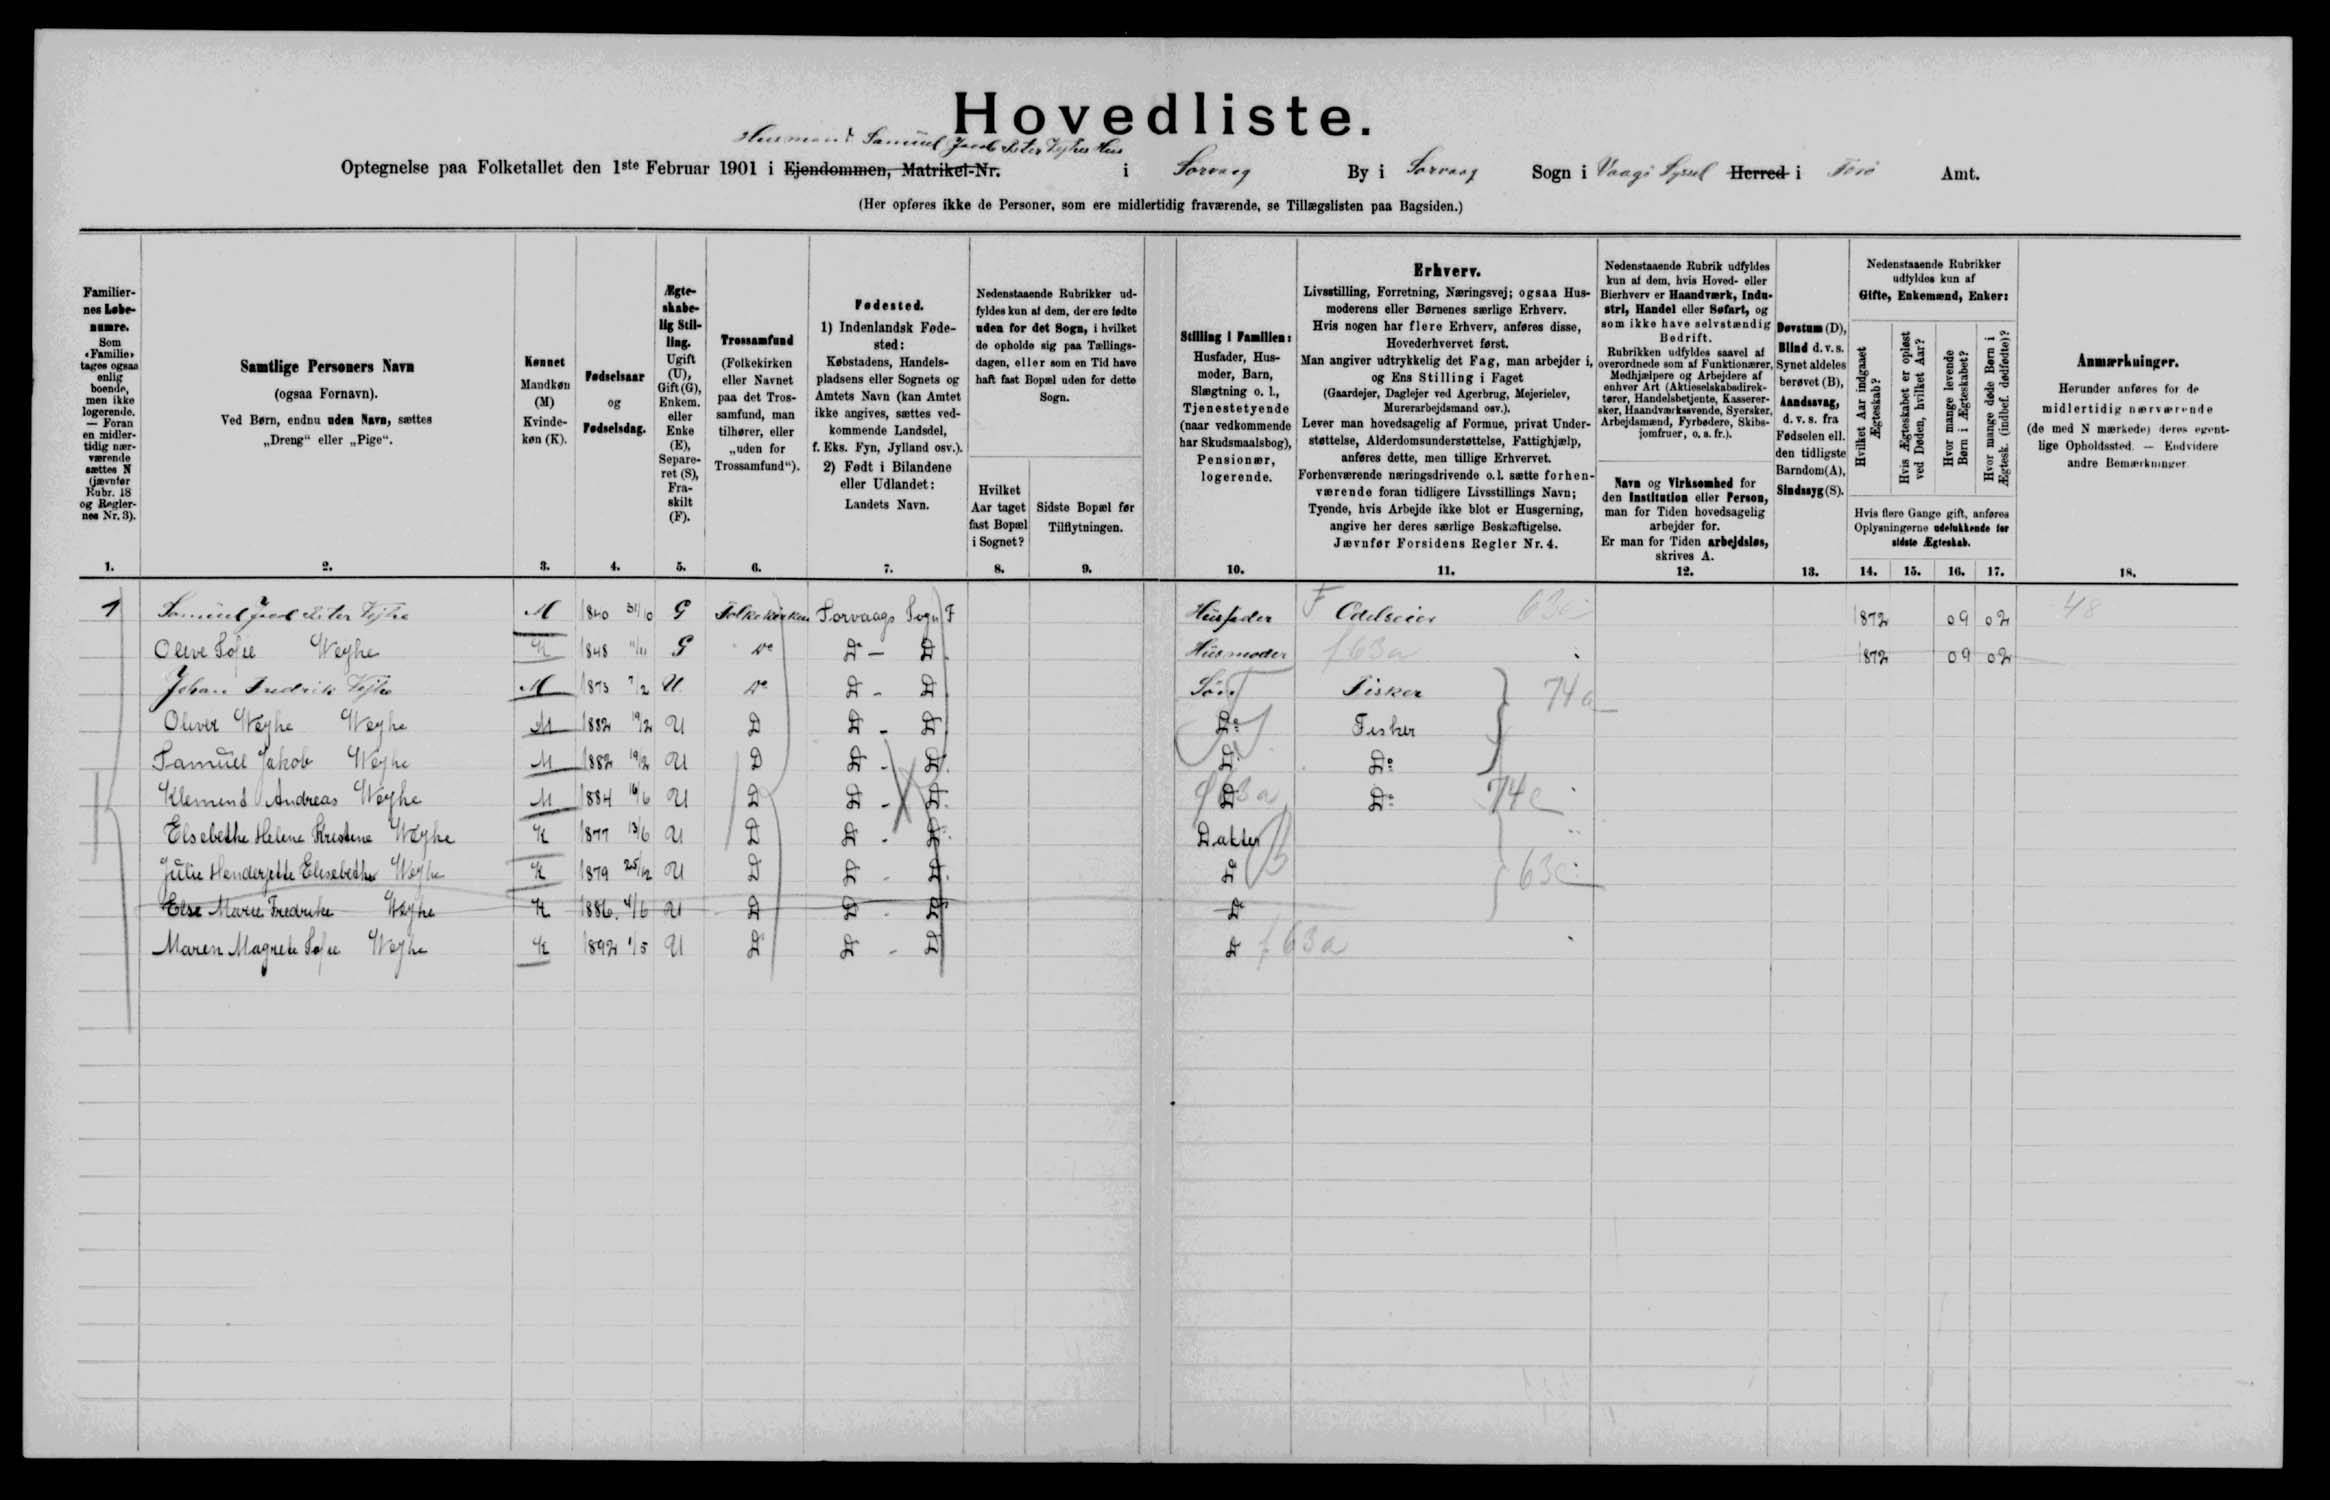 Hovedliste.
Husmand Samuel Jacob Peter Vejhes Hus
Optegnelse paa Folketallet den 1ste Februar 1901 i Ejendommen, Matrikel-Nr. i Sorvaag By i Sorvaag Sogn i Vaagø Syssel Herred i Færø Amt.
(Her opføres ikke de Personer, som ere midlertidig fraværende, se Tillægslisten paa Bagsiden.)
Familier-
nes Løbe-
numre.
Som
«Familie»
tages ogsaa
enlig
boende,
men ikke
logerende.
— Foran
en midler-
tidig nær-
værende
sættes N
(jævnfør
Rubr. 18
og Regler-
nes Nr. 3).
1.
Samtlige Personers Navn
(ogsaa Fornavn).
Ved Børn, endnu uden Navn, sættes
„Dreng“ eller „Pige“.
2.
Kønnet
Mandkøn
(M)
Kvinde-
køn (K).
3.
Fødselsaar
og
Fødselsdag.
4.
Ægte-
skabe-
lig Stil-
ling.
Ugift
(U),
Gift (G),
Enkem.
eller
Enke
(E),
Separe-
ret (S),
Fra-
skilt
(F).
5.
Trossamfund
(Folkekirken
eller Navnet
paa det Tros-
samfund, man
tilhører, eller
„uden for
Trossamfund“).
6.
Fødested.
1) Indenlandsk Føde-
sted:
Købstadens, Handels-
pladsens eller Sognets og
Amtets Navn (kan Amtet
ikke angives, sættes ved-
kommende Landsdel,
f. Eks. Fyn, Jylland osv.).
2) Født i Bilandene
eller Udlandet:
Landets Navn.
7.
Nedenstaaende Rubrikker ud-
fyldes kun af dem, der ere fødte
uden for det Sogn, i hvilket
de opholde sig paa Tællings-
dagen, eller som en Tid have
haft fast Bopæl uden for dette
Sogn.
Hvilket
Aar taget
fast Bopæl
i Sognet?
8.
Sidste Bopæl før
Tilflytningen.
9.
Stilling i Familien:
Husfader, Hus-
moder, Barn,
Slægtning o. l.,
Tjenestetyende
(naar vedkommende
har Skudsmaalsbog),
Pensionær,
logerende.
10.
Erhverv.
Livsstilling, Forretning, Næringsvej; ogsaa Hus-
moderens eller Børnenes særlige Erhverv.
Hvis nogen har flere Erhverv, anføres disse,
Hovederhvervet først.
Man angiver udtrykkelig det Fag, man arbejder i,
og Ens Stilling i Faget
(Gaardejer, Daglejer ved Agerbrug, Mejerielev,
Murerarbejdsmand osv.).
Lever man hovedsagelig af Formue, privat Under-
støttelse, Alderdomsunderstøttelse, Fattighjælp,
anføres dette, men tillige Erhvervet.
Forhenværende næringsdrivende o. l. sætte forhen-
værende foran tidligere Livsstillings Navn;
Tyende, hvis Arbejde ikke blot er Husgerning,
angive her deres særlige Beskæftigelse.
Jævnfør Forsidens Regler Nr. 4.
11.
Nedenstaaende Rubrik udfyldes
kun af dem, hvis Hoved- eller
Bierhverv er Haandværk, Indu-
stri, Handel eller Søfart, og
som ikke have selvstændig
Bedrift.
Rubrikken udfyldes saavel af
overordnede som af Funktionærer,
Medhjælpere og Arbejdere af
enhver Art (Aktieselskabsdirek-
tører, Handelsbetjente, Kasserer-
sker, Haandværkssvende, Syersker,
Arbejdsmænd, Fyrbødere, Skibs-
jomfruer, o. s. fr.).
Navn og Virksomhed for
den Institution eller Person,
man for Tiden hovedsagelig
arbejder for.
Er man for Tiden arbejdsløs,
skrives A.
12.
Døvstum (D),
Blind d. v. s.
Synet aldeles
berøvet (B),
Aandssvag,
d. v. s. fra
Fødselen ell.
den tidligste
Barndom (A),
Sindssyg (S).
13.
Nedenstaaende Rubrikker
udfyldes kun af
Gifte, Enkemænd, Enker:
Hvilket Aar indgaaet
Ægteskab?
Hvis Ægteskabet er opløst
ved Døden, hvilket Aar?
Hvor mange levende
Børn i Ægteskabet?
Hvor mange døde Børn i
Ægtesk. (indbef. dødfødte)?
Hvis flere Gange gift, anføres
Oplysningerne udelukkende for
sidste Ægteskab.
14. 15. 16. 17.
Anmærkninger.
Herunder anføres for de
midlertidig nærværende
(de med N mærkede) deres egent-
lige Opholdssted. — Endvidere
andre Bemærkninger.
18.
1 Samuel Jacob Peter Vejhe M 1840 31/10 G Folkekirken Sorvaags Sogn F Husfader F Odelseier 63c 1872 09 02 48
Olive Sofie Weyhe K 1848 11/11 G Do Do - Do Husmoder f 63a 1872 09 02
Johan Fredrik Vejhe M 1873 7/2 U Do D - D Søn Fisker 74a
Oliver Weyhe Weyhe M 1882 19/2 U D D - D Do Fisker
Samuel Jakob Weyhe M 1882 19/2 U D D - D D Do
Klemend Andreas Weyhe M 1884 16/6 U D D - D D f 63a Do 74c
Elsebethe Helene Kristene Weyhe K 1877 13/6 U D D - D Datter
Julie Henderjette Elisebethe Weyhe K 1879 25/12 U D D - D D 63c
Else Marie Fredrike Weyhe K 1886 4/6 U D D - D D
Maren Magrete Sofie Weyhe K 1892 1/5 U D D - D D f 63a